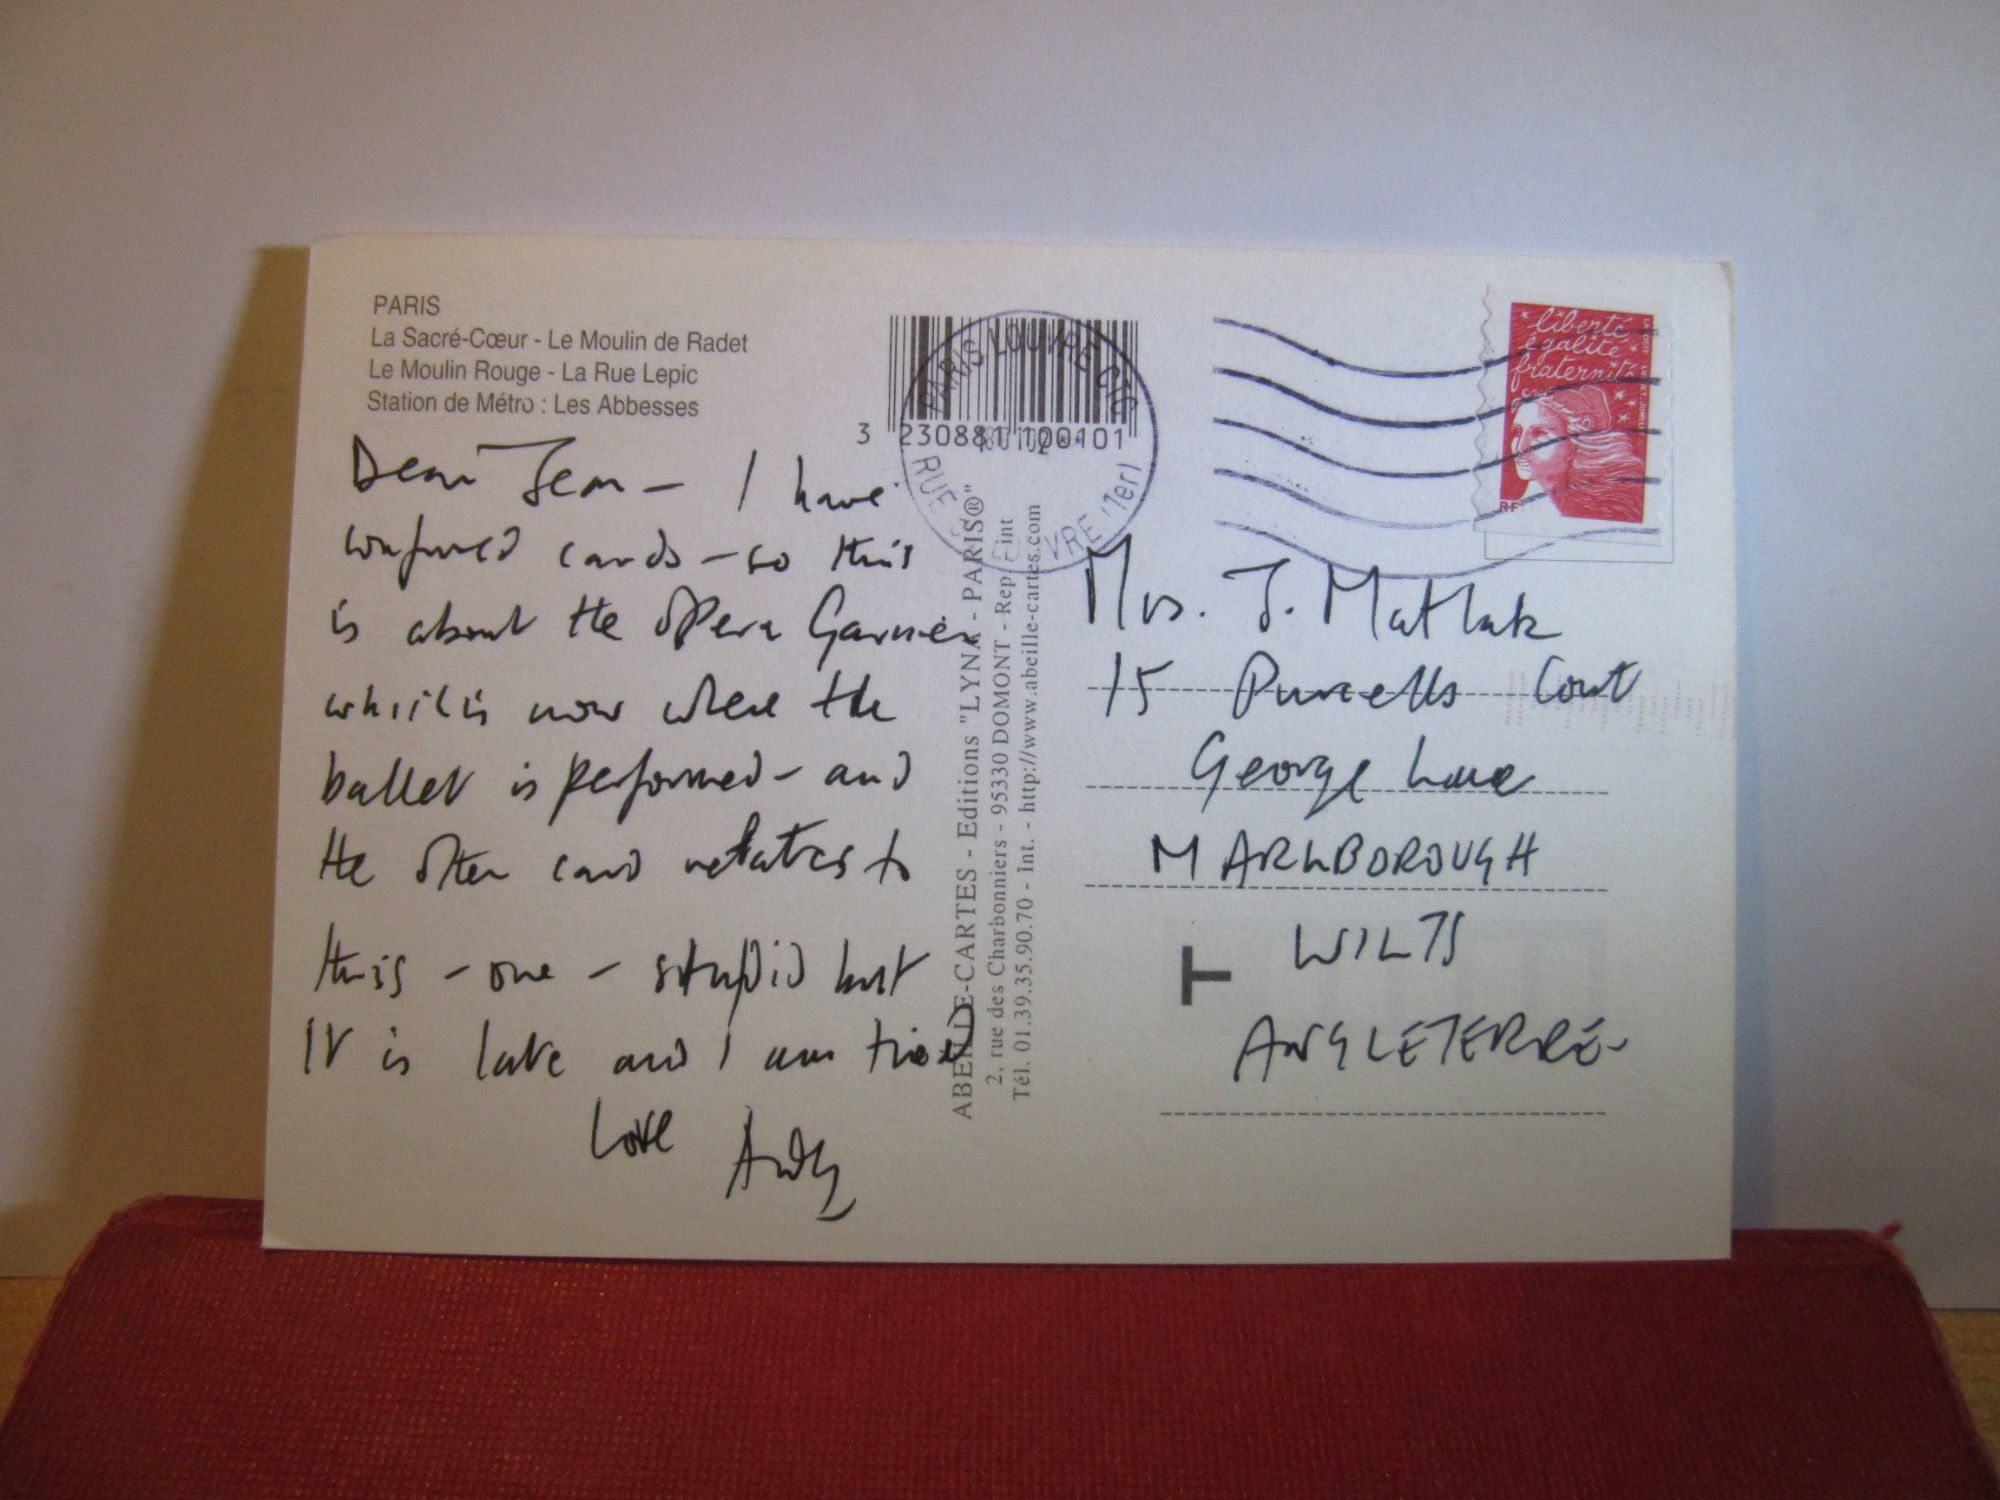 PARIS
La Sacré-Cœur - Le Moulin de Radet
Le Moulin Rouge - La Rue Lepic
Station de Métro : Les Abbesses
Dear Jean - I have
confused cards - so this
is about the Opera Garnier
which is now where the
ballet is performed - and
the other card relates to
this - one - stupid but
it is late and I am tired
Love Andy
3 230881 100101
PARIS LOUVRE CTC
RUE VRE (1er)
ABEILLE-CARTES - Editions "LYNA - PARIS®"
2, rue des Charbonniers - 95330 DOMONT - Rep int
Tél. 01.39.35.90.70 - Int. - http://www.abeille-cartes.com
liberté
égalité
fraternité
RF
Mrs. J. Matlak
15 Purcells Court
George Lane
MARLBOROUGH
WILTS
T
ANGLETERRE